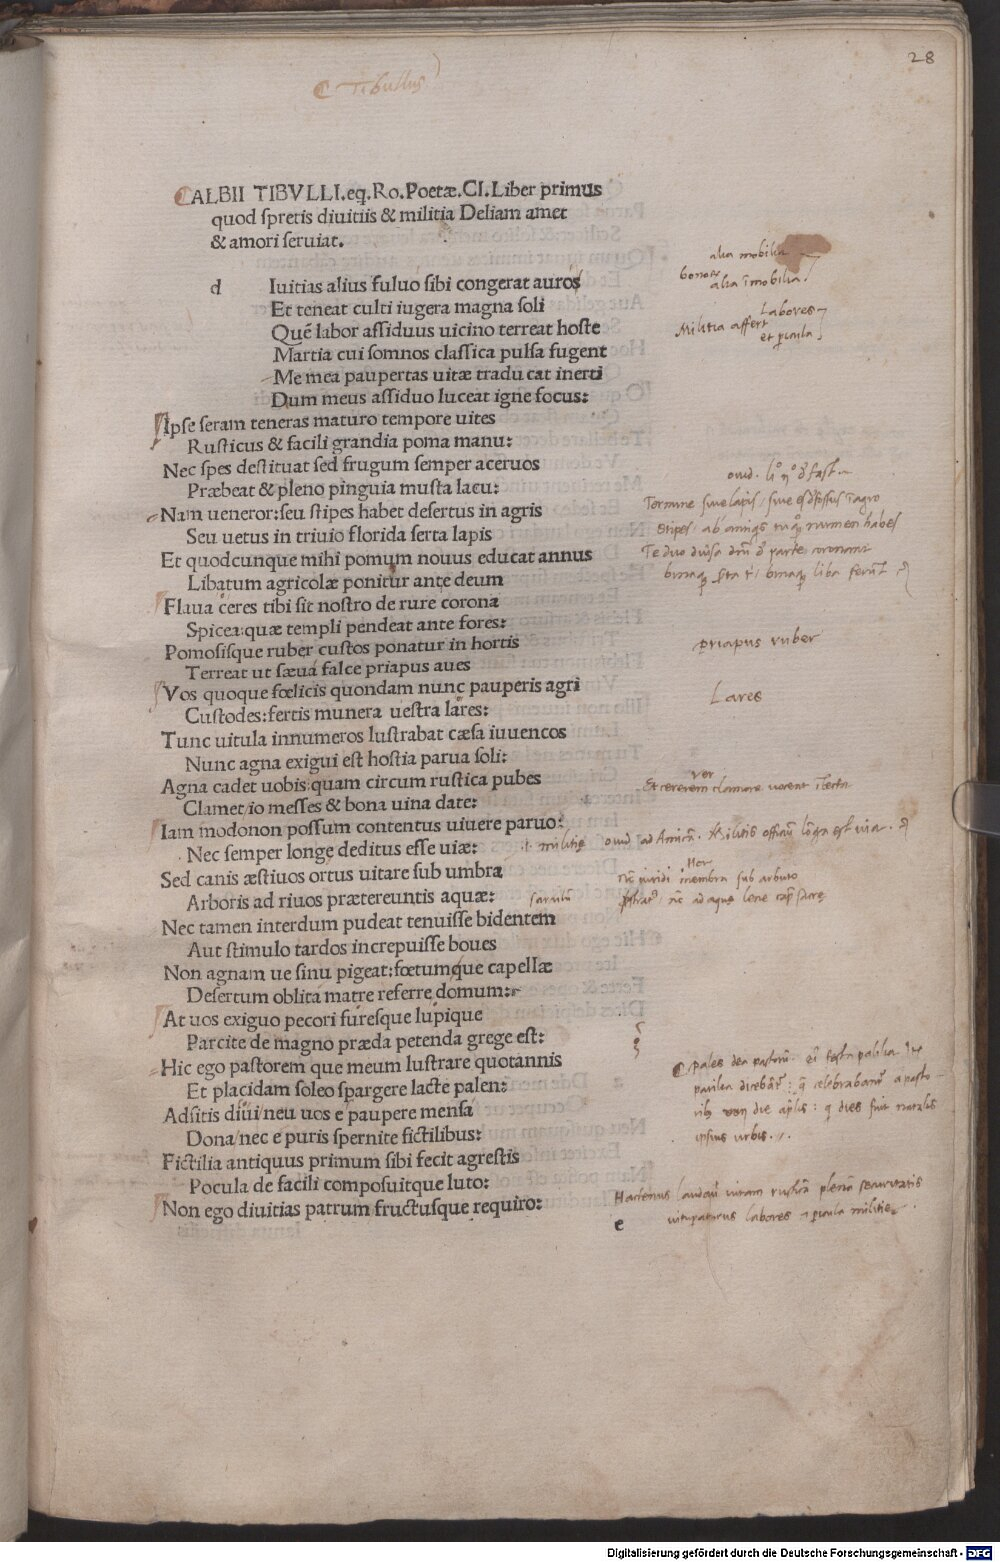 28
Tibullus
ALBII TIBVLLI.eq.Ro.Poetæ.Cl.Liber primus
quod ſpretis diuitiis & militia Deliam amet
& amori ſeruiat.
d Iuitias alius fuluo ſibi congerat auros
alia mobilia
bonorum alia imobilia
Et teneat culti iugera magna ſoli
Labores
Quẽ labor aſſiduus uicino terreat hoſte
Militia affert et picula
Martia cui ſomnos claſſica pulſa fugent
Me mea paupertas uitæ tradu cat inerti
Dum meus aſſiduo luceat igne focus:
Ipſe ſeram teneras maturo tempore uites
Ruſticus & facili grandia poma manu:
Nec ſpes deſtituat ſed frugum ſemper aceruos
ouid. fast.
Præbeat & pleno pinguia muſta lacu:
Termine siue lapis, siue es agro
Nam ueneror:ſeu ſtipes habet deſertus in agris
Stipes, ab numen habes
Seu uetus in triuio florida ſerta lapis
Te duo parte coronant
Et quodcunque mihi pomum nouus educat annus
binaq serta binaq liba
Libatum agricolæ ponitur ante deum
Flaua ceres tibi ſit noſtro de rure corona
Spicea:quæ templi pendeat ante fores:
Pomoſiſque ruber cuſtos ponatur in hortis
priapus ruber
Terreat ut ſæua falce priapus aues
Vos quoque fœlicis quondam nunc pauperis agri
Lares
Cuſtodes:fertis munera ueſtra lares:
Tunc uitula innumeros luſtrabat cæſa iuuencos
Nunc agna exigui eſt hoſtia parua ſoli:
Agna cadet uobis:quam circum ruſtica pubes
ver
Et cererem clamore uocent tecta
Clamet/io meſſes & bona uina date:
Iam modonon poſſum contentus uiuere paruo:
Nec ſemper longe deditus eſſe uiæ:
.i. militię ouid ad Militis est via.
Sed canis æſtiuos ortus uitare ſub umbra
Hor
uiridi membra sub arbuto
Arboris ad riuos prætereuntis aquæ:
ad aquę lene sacrę
Nec tamen interdum pudeat tenuiſſe bidentem
Aut ſtimulo tardos increpuiſſe boues
Non agnam ue ſinu pigeat:fœtumque capellæ
Deſertum oblita matre referre domum:
At uos exiguo pecori fureſque lupique
Parcite de magno præda petenda grege eſt:
Hic ego paſtorem que meum luſtrare quotannis
Pales dea festa palilia
Et placidam ſoleo ſpargere lacte palen:
Adſitis diui/neu uos e paupere menſa
die dies fuit natalis
Dona/nec e puris ſpernite fictilibus:
ipsius urbis.
Fictilia antiquus primum ſibi fecit agreſtis
Pocula de facili compoſuitque luto:
Hactenus uitam plenã securitatis
Non ego diuitias patrum fructuſque requiro:
uituperaturus labores picula militię
e
Digitalisierung gefördert durch die Deutsche Forschungsgemeinschaft - DFG